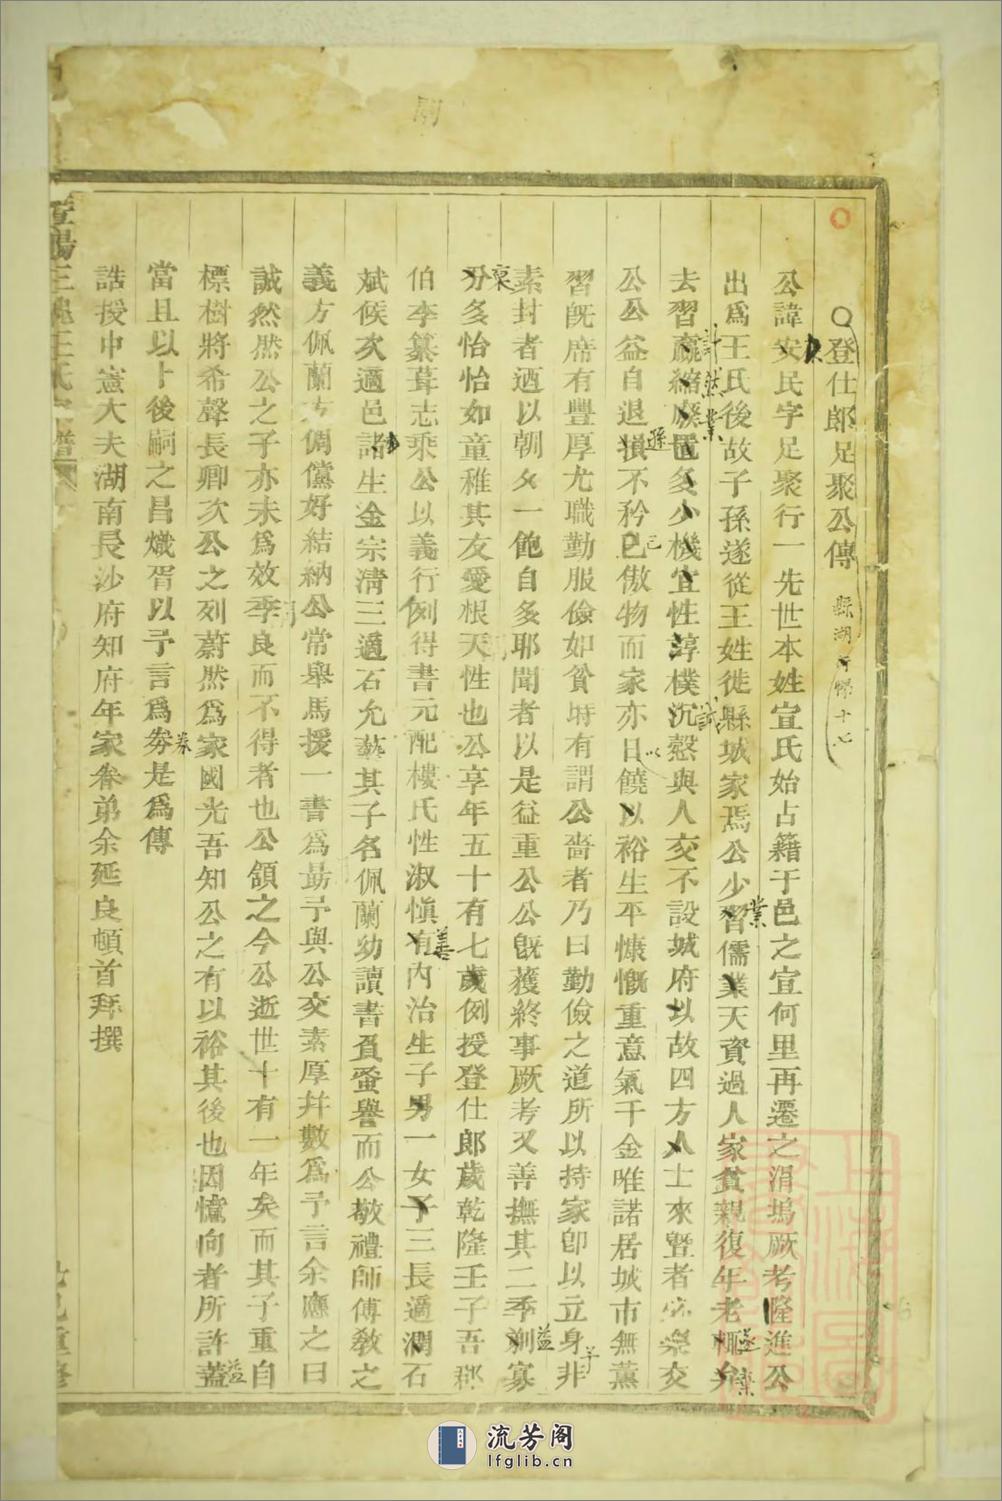 登仕郎足聚公傳
公諱安民字足聚行一先世本姓宣氏始占籍于邑之宣何里再遷之涓塢厥考隆進公
出爲王氏後故子孫遂從王姓徙縣城家焉公少習儒業天資過人家貧親復年老輒弁
去習贏縮廢置多少機宜性淳樸沉慤與人交不設城府以故四方人士來暨者咸樂交
公公益自退損不矜已傲物而家亦日饒以裕生平慷慨重意氣千金唯諾居城市無薰
習旣席有豐厚尤職勤服儉如貧時有謂公嗇者乃曰勤儉之道所以持家卽以立身非
素封者迺以朝夕一飽自多耶聞者以是益重公公旣獲終事厥考又善撫其二季剬寡
分多怡怡如童稚其友愛根天性也公享年五十有七歲例授登仕郎歲乾隆壬子吾郡
伯李纂葺志乘公以義行例得書元配樓氏性淑愼有內治生子男一女子三長適澗石
斌候次適邑諸生金宗淸三適石允蓺其子名佩蘭幼讀書負蚤譽而公敬禮師傅敎之
義方佩蘭亦倜儻好結納公常舉馬援一書爲勗予與公交素厚幷數爲予言余應之曰
誠然然公之子亦未爲效季良而不得者也公頷之今公逝世十有一年矣而其子重自
標樹將希聲長卿次公之列蔚然爲家國光吾知公之有以裕其後也因憶向者所許蓋
當且以卜後嗣之昌熾胥以予言爲券是爲傳
誥授中憲大夫湖南長沙府知府年家眷弟余延良頓首拜撰
流芳阁
lfglib.cn